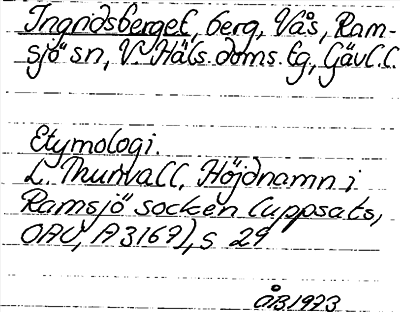 Ingridsberget, berg, Vås, Ram-
sjö sn, V. Häls. doms. lg, Gävl. l.
Etymologi.
L. Thunvall, Höjdnamn i
Ramsjö socken (uppsats,
OAU, A 3167), s 29
ÅB 1973